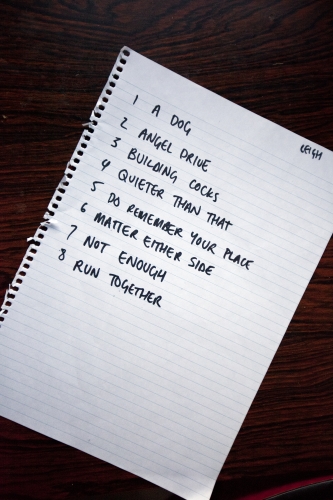 LEIGH
1 A DOG
2 ANGEL DRIVE
3 BUILDING COCKS
4 QUIETER THAN THAT
5 DO REMEMBER YOUR PLACE
6 MATTER EITHER SIDE
7 NOT ENOUGH
8 RUN TOGETHER